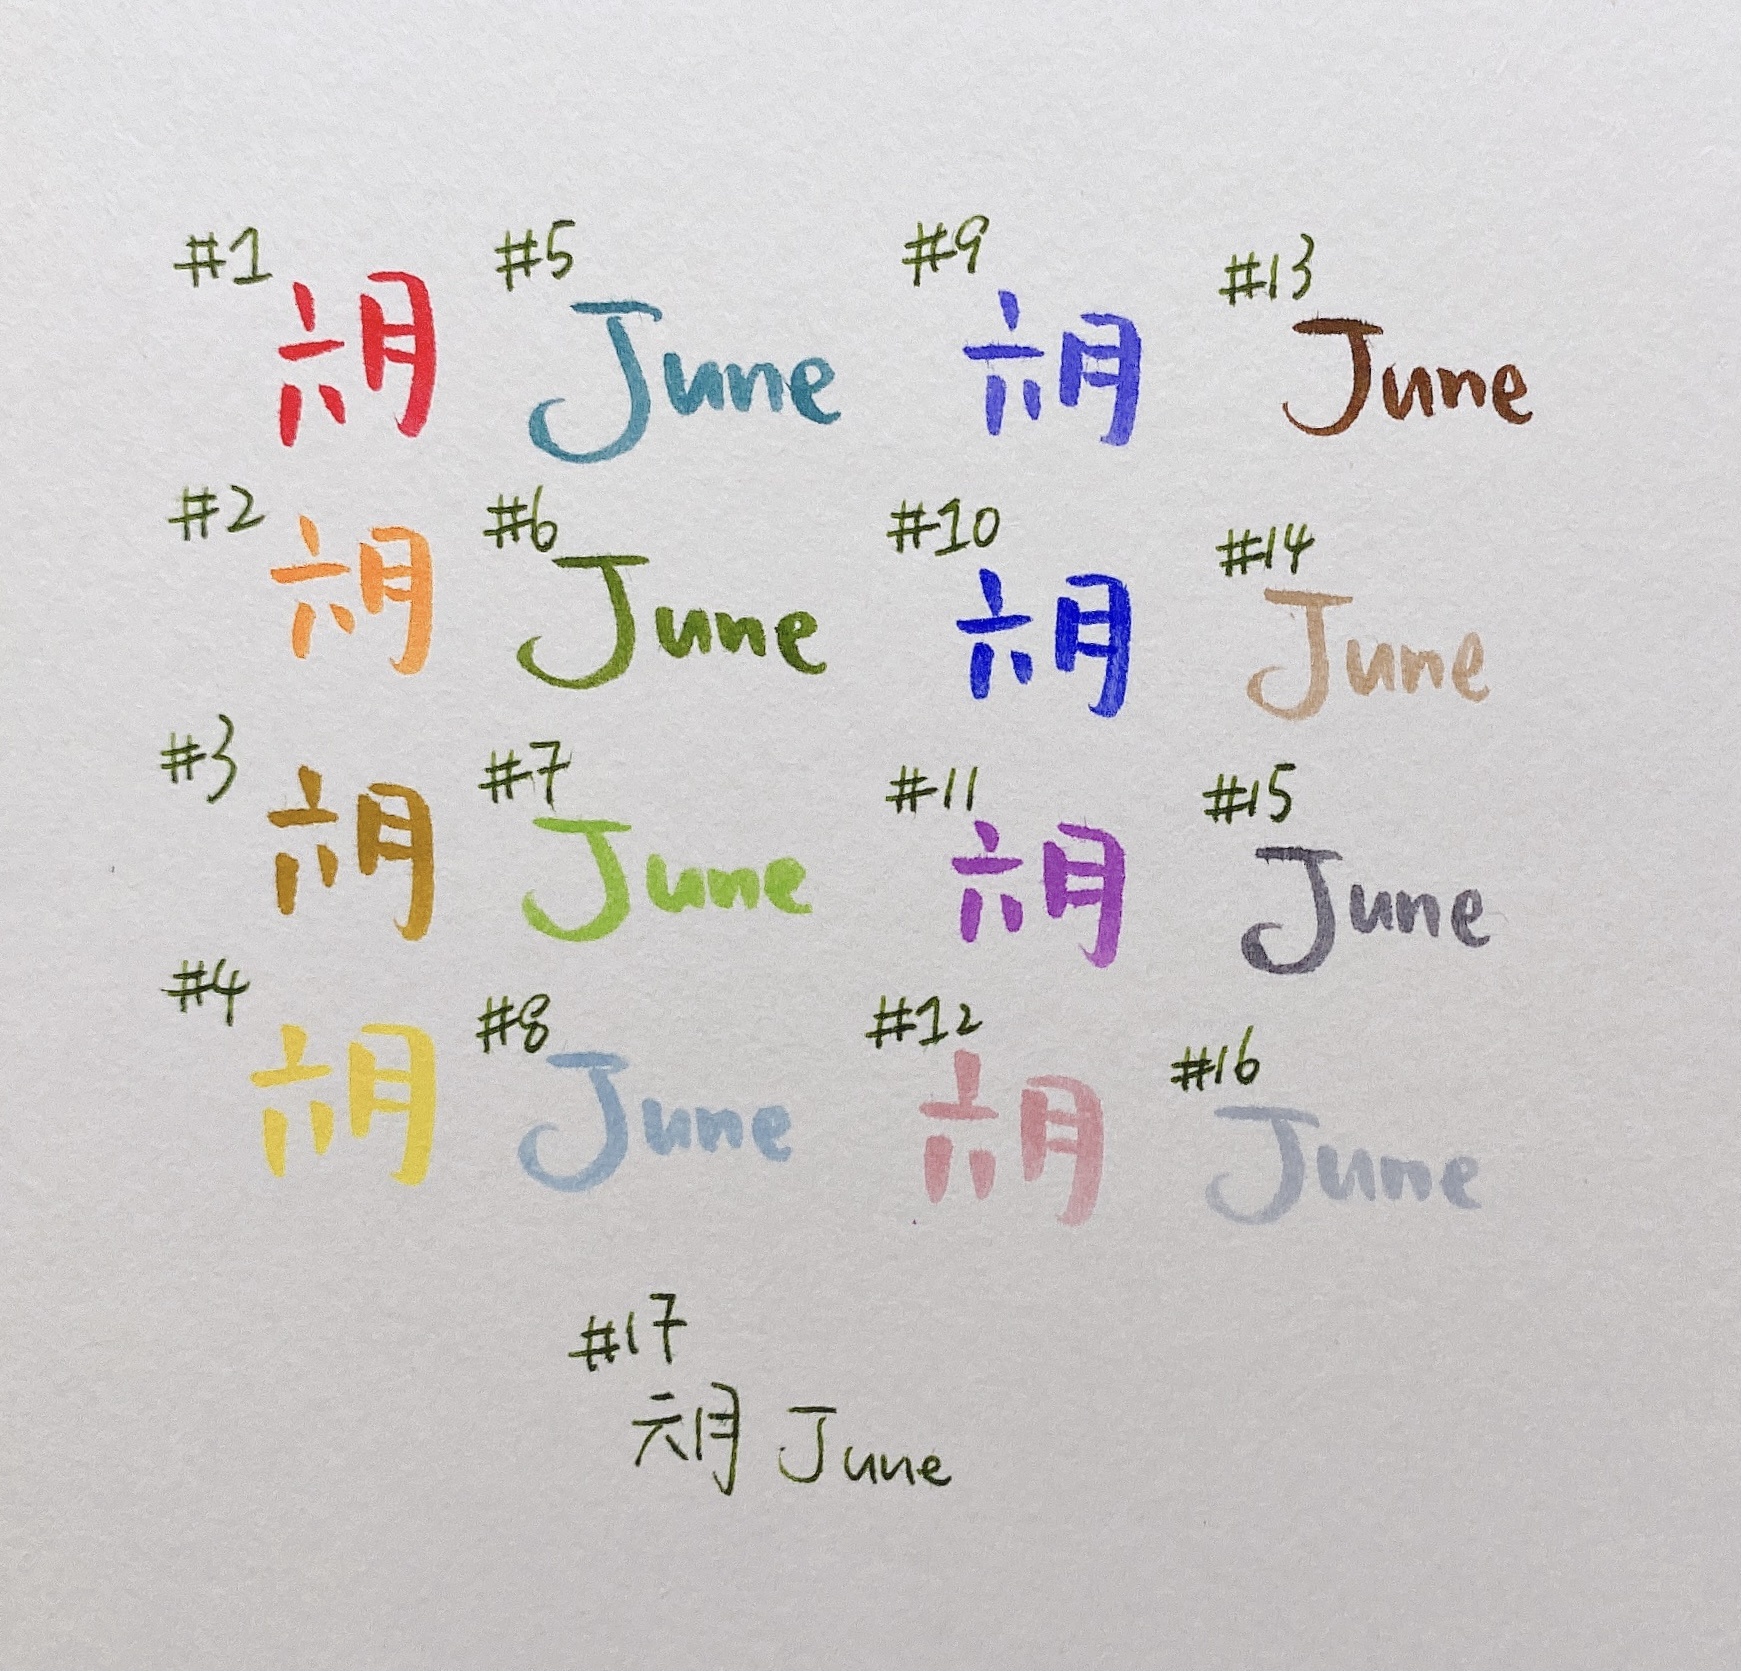 #1 六月 #5 June #9 六月 #13 June
#2 六月 #6 June #10 六月 #14 June
#3 六月 #7 June #11 六月 #15 June
#4 六月 #8 June #12 六月 #16 June
#17
六月 June